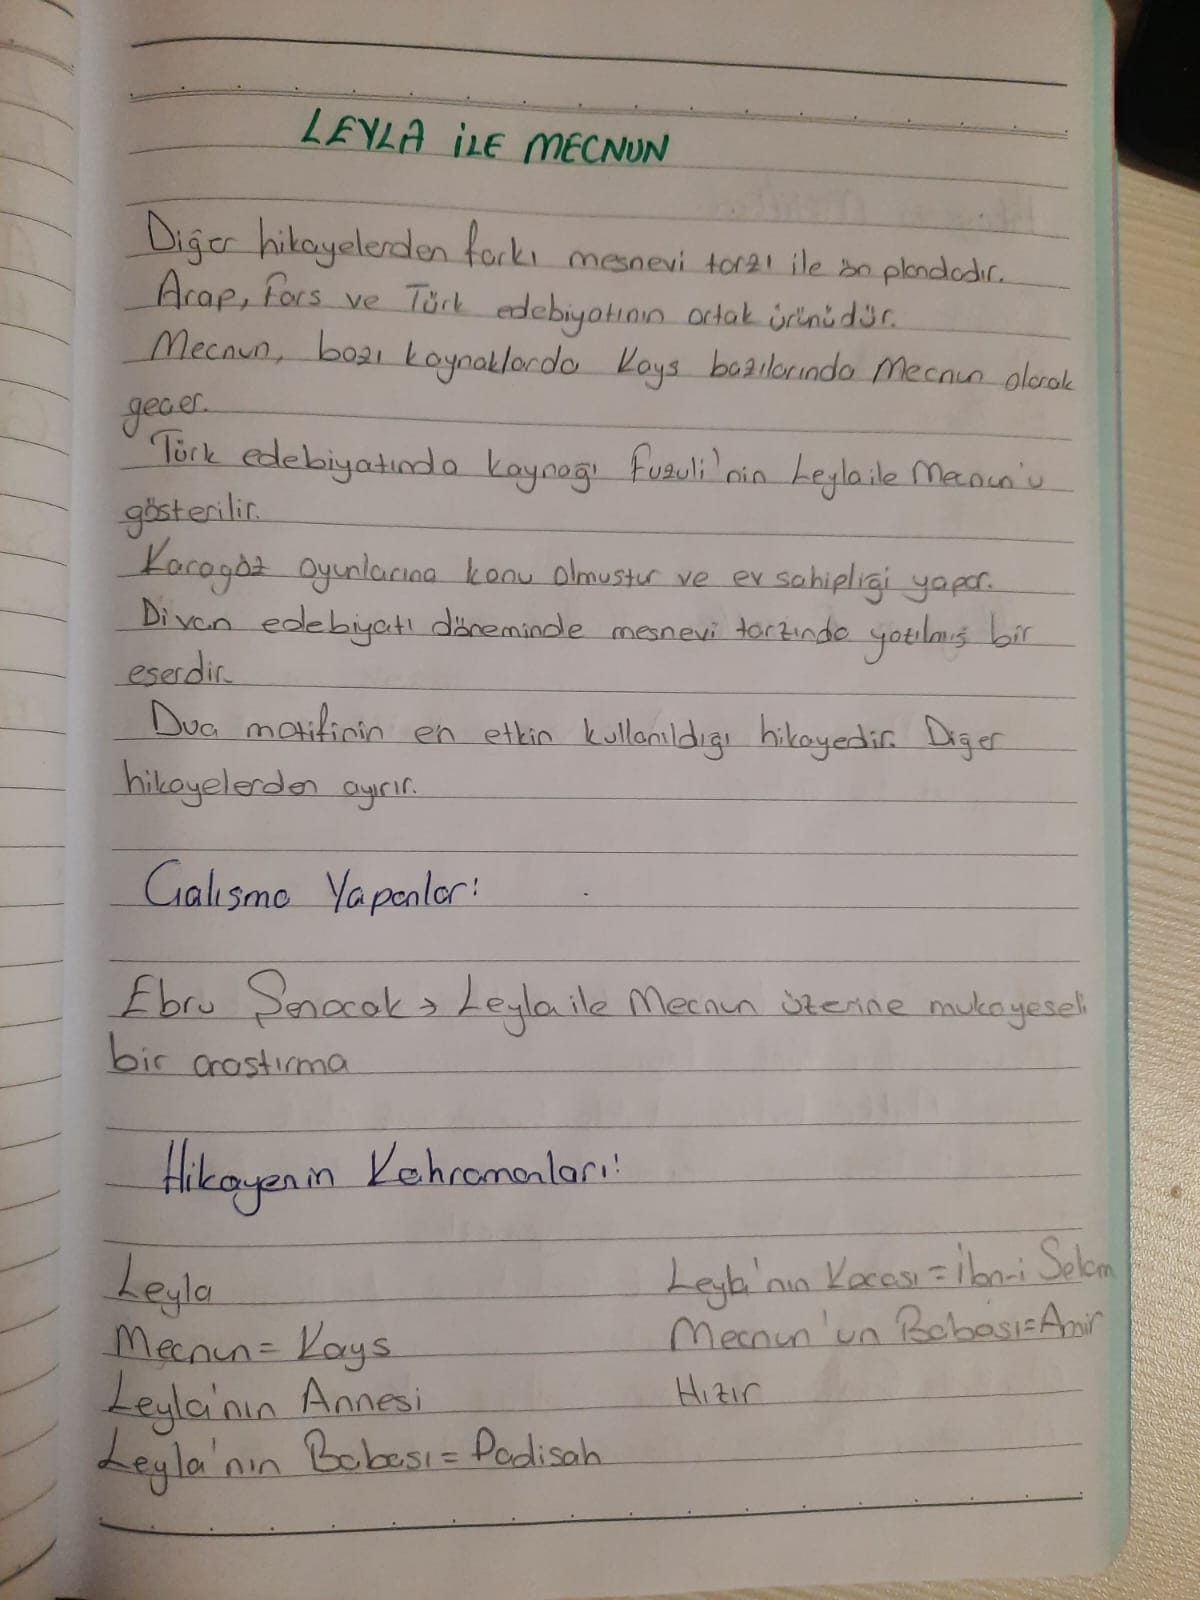 LEYLA İLE MECNUN
Diğer hikayelerden farkı mesnevi tarzı ile ön plandadır.
Arap, Fars ve Türk edebiyatının ortak ürünüdür.
Mecnun, bazı kaynaklarda Kays bazılarında Mecnun olarak
geçer.
Türk edebiyatında kaynağı Fuzuli'nin Leyla ile Mecnun'u
gösterilir.
Karagöz oyunlarına konu olmustur ve ev sahipliği yapar.
Divan edebiyatı döneminde mesnevi tarzında yazılmış bir
eserdir.
Dua motifinin en etkin kullanıldığı hikayedir. Diğer
hikayelerden ayırır.
Çalısma Yapanlar:
Ebru Şenocak → Leyla ile Mecnun üzerine mukayeseli
bir arastırma
Hikayenin Kahramanları:
Leyla
Mecnun = Kays
Leyla'nın Annesi
Leyla'nın Babası = Padisah
Leyla'nın Kocası = İbn-i Selam
Mecnun'un Babası = Amir
Hızır